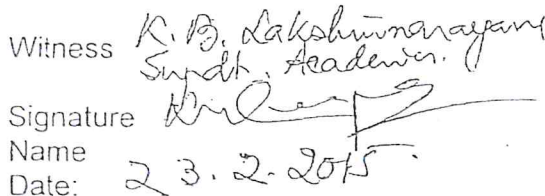 Witness K. B. Lakshminarayana
Supdt. Academic.
Signature
Name
Date: 23.2.2015.